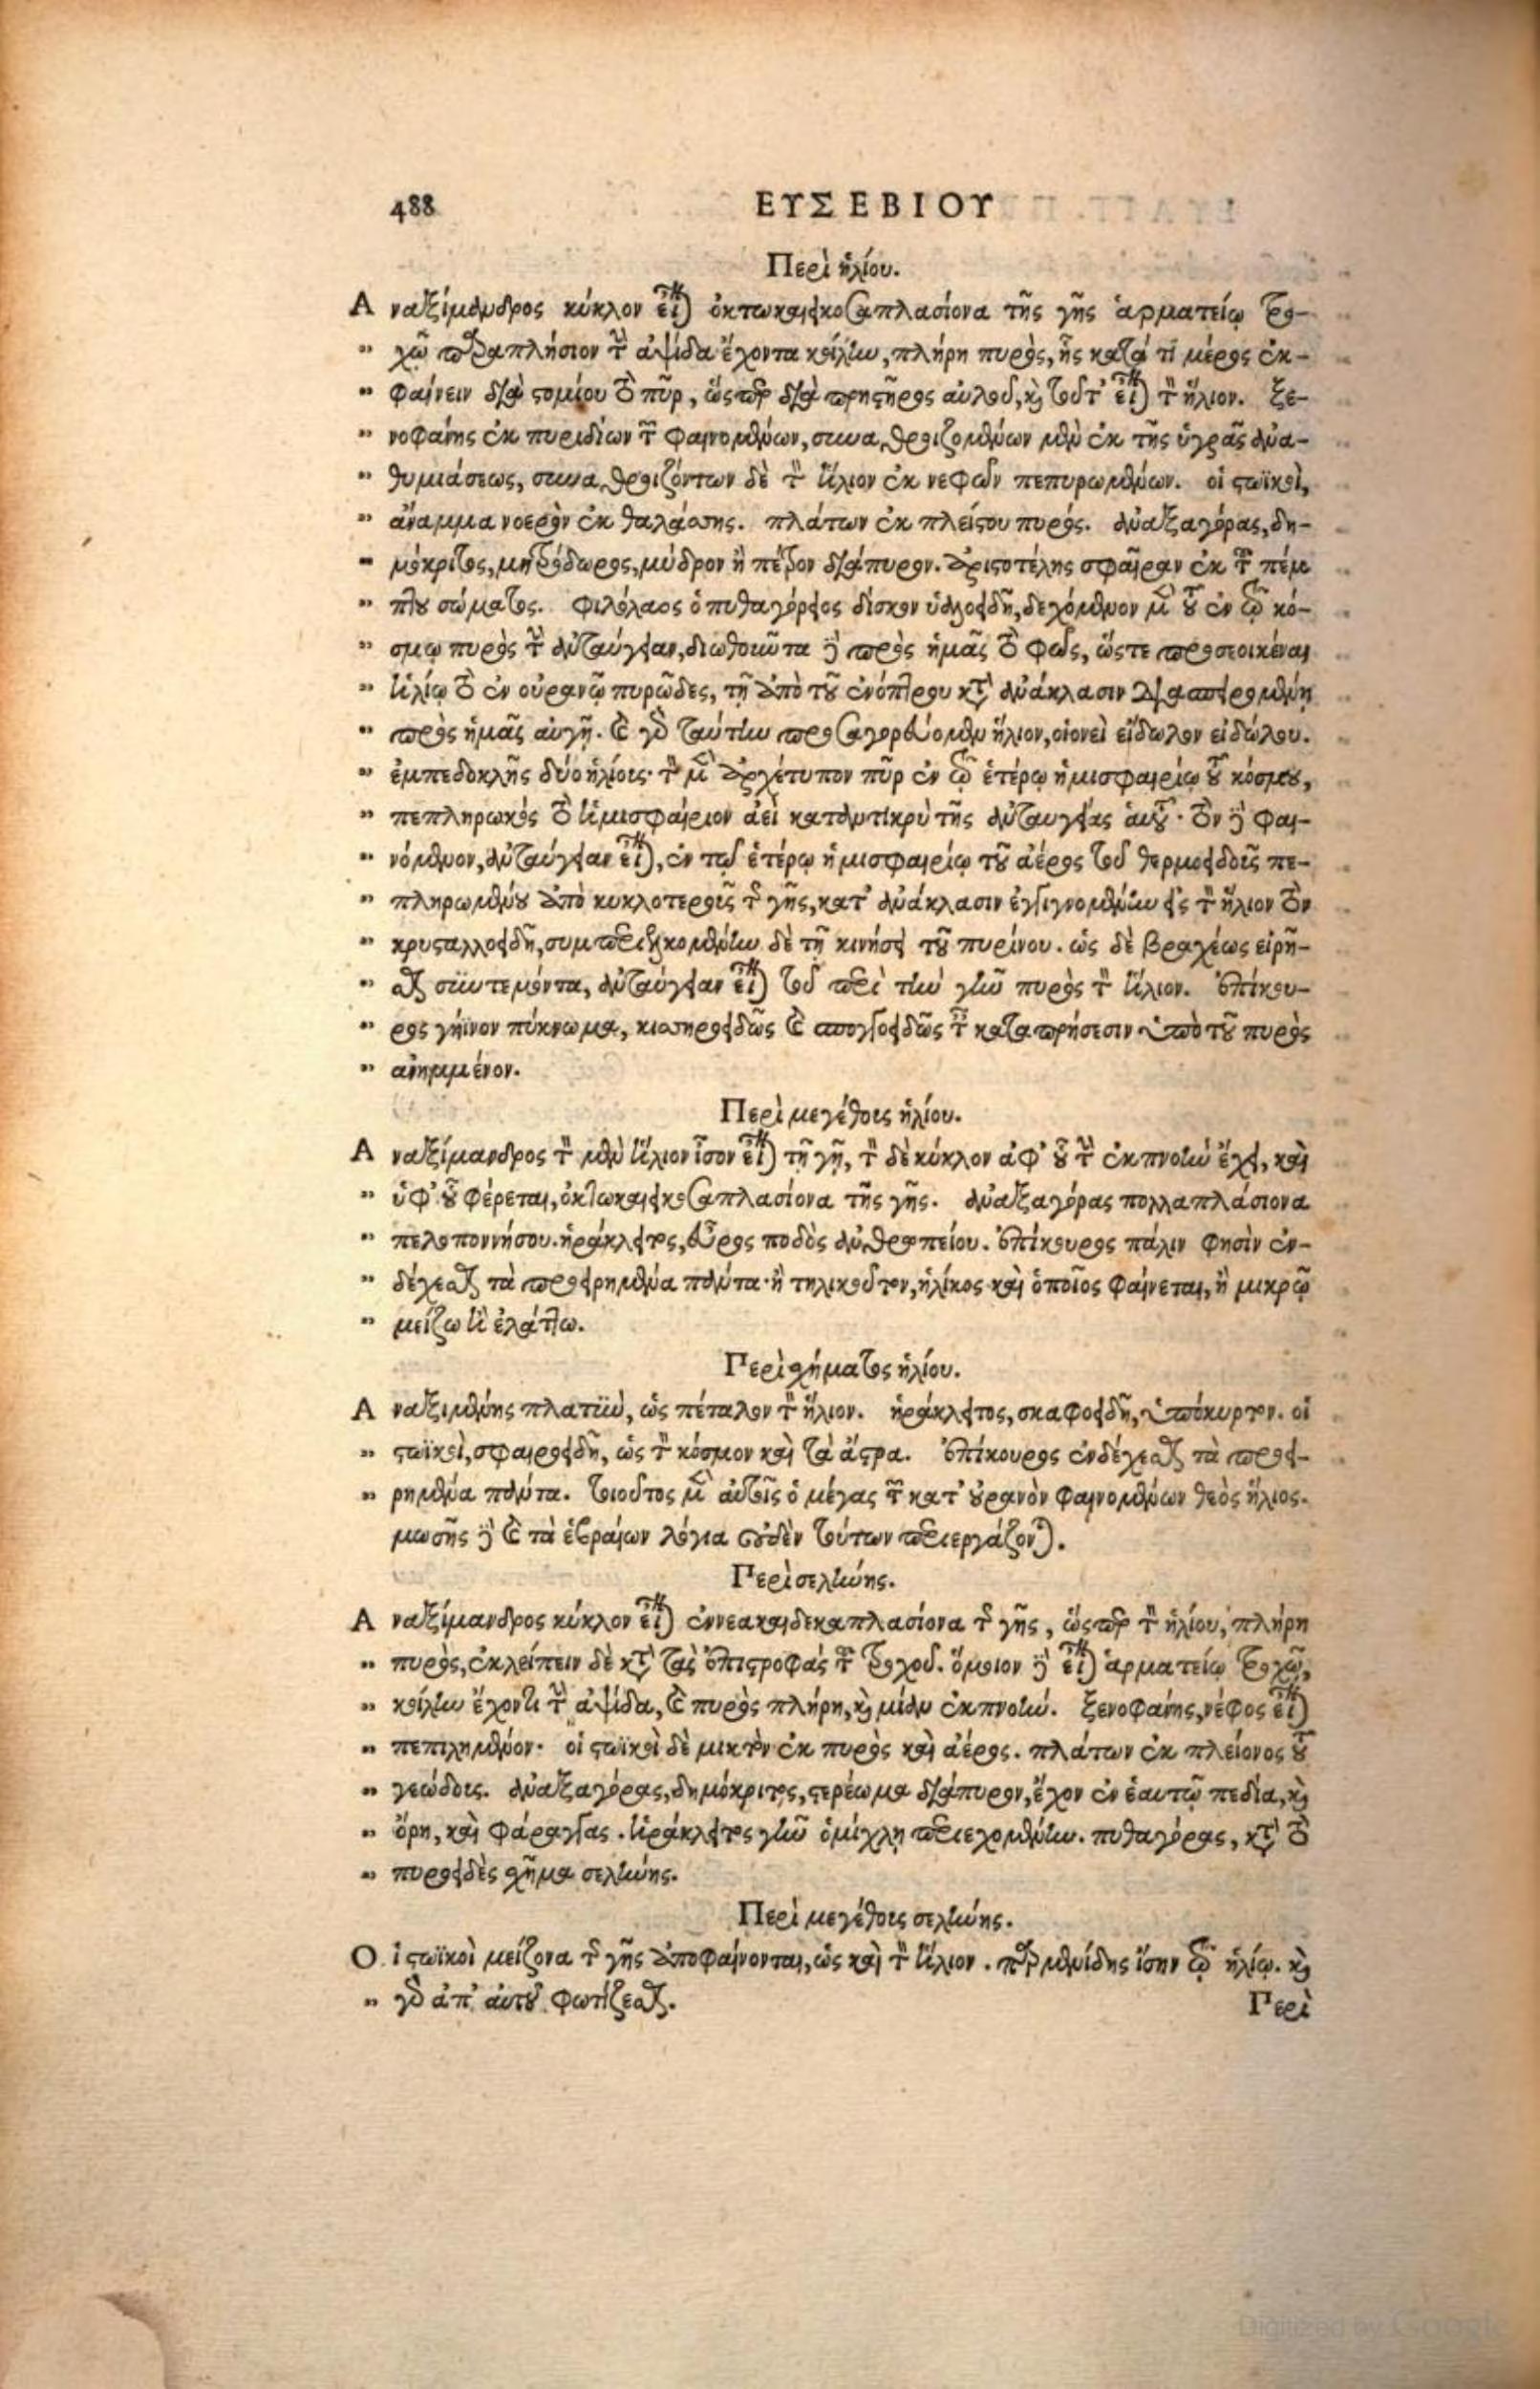 488 ΕΥΣΕΒΙΟΥ
Περὶ ἡλίου.
Αναξίμανδρος κύκλον εἶναι ὀκτωκαιεικοσαπλασίονα τῆς γῆς ἁρματείῳ τρο-
" χῷ παραπλήσιον τὴν ἁψίδα ἔχοντα κοίλην, πλήρη πυρὸς, ἧς κατά τι μέρος ἐκ-
" φαίνειν διὰ στομίου τὸ πῦρ, ὥσπερ διὰ πρηστῆρος αὐλοῦ, καὶ τοῦτ' εἶναι τὸν ἥλιον. ξε-
" νοφάνης ἐκ πυριδίων τῶν φαινομένων, συναθροιζομένων μὲν ἐκ τῆς ὑγρᾶς ἀνα-
" θυμιάσεως, συναθροιζόντων δὲ τὸν ἥλιον ἐκ νεφῶν πεπυρωμένων. οἱ στωϊκοὶ,
" ἄναμμα νοερὸν ἐκ θαλάσσης. πλάτων ἐκ πλείστου πυρός. ἀναξαγόρας, δη-
" μόκριτος, μητρόδωρος, μύδρον ἢ πέτρον διάπυρον. ἀριστοτέλης σφαῖραν ἐκ τοῦ πέμ
" πτου σώματος. φιλόλαος ὁ πυθαγόρειος δίσκον ὑαλοειδῆ, δεχόμενον μὲν τοῦ ἐν τῷ κό-
" σμῳ πυρὸς τὴν ἀνταύγειαν, διωθοιῶτα δὲ πρὸς ἡμᾶς τὸ φῶς, ὥστε προσεοικέναι
" ἡλίῳ τὸ ἐν οὐρανῷ πυρῶδες, τῇ ἀπὸ τοῦ ἐνόπτρου κατ' ἀνάκλασιν διασπειρομένῃ
" πρὸς ἡμᾶς αὐγῇ. καὶ γὰρ ταύτην προσαγορεύομεν ἥλιον, οἱονεὶ εἴδωλον εἰδώλου.
" ἐμπεδοκλῆς δύο ἡλίους· τὸν μὲν ἀρχέτυπον πῦρ ἐν τῷ ἑτέρῳ ἡμισφαιρίῳ τοῦ κόσμου,
" πεπληρωκὸς τὸ ἡμισφαίριον ἀεὶ καταντικρὺ τῆς ἀνταυγείας αὑτοῦ· τὸν δὲ φαι-
" νόμενον, ἀνταύγειαν εἶναι, ἐν τῷ ἑτέρῳ ἡμισφαιρίῳ τοῦ ἀέρος τοῦ θερμοειδοῦς πε-
" πληρωμένου ἀπὸ κυκλοτεροῦς τῆς γῆς, κατ' ἀνάκλασιν ἐγγιγνομένην εἰς τὸν ἥλιον τὸν
" κρυσταλλοειδῆ, συμπεριελκομένην δὲ τῇ κινήσει τοῦ πυρίνου. ὡς δὲ βραχέως εἰρῆ-
" σθαι συντεμόντα, ἀνταύγειαν εἶναι τοῦ περὶ τὴν γῆν πυρὸς τὸν ἥλιον. ἐπίκου-
" ρος γήϊνον πύκνωμα, κισσηροειδῶς καὶ σπογγοειδῶς ταῖς κατατρήσεσιν ὑπὸ τοῦ πυρὸς
" ἀνημμένον.
Περὶ μεγέθους ἡλίου.
Αναξίμανδρος τὸν μὲν ἥλιον ἴσον εἶναι τῇ γῇ, τὸν δὲ κύκλον ἀφ' οὗ τὴν ἐκπνοὴν ἔχει, καὶ
" ὑφ' οὗ φέρεται, ὀκτωκαιεικοσαπλασίονα τῆς γῆς. ἀναξαγόρας πολλαπλάσιονα
" πελοποννήσου. ἡράκλειτος, εὖρος ποδὸς ἀνθρωπείου. ἐπίκουρος πάλιν φησὶν ἐν-
" δέχεσθαι τὰ προειρημένα πάντα· ἢ τηλικοῦτον, ἡλίκος καὶ ὁποῖος φαίνεται, ἢ μικρῷ
" μείζω ἢ ἐλάττω.
Περὶ σχήματος ἡλίου.
Αναξιμένης πλατὺν, ὡς πέταλον τὸν ἥλιον. ἡράκλειτος, σκαφοειδῆ, ὑπόκυρτον. οἱ
" στωϊκοὶ, σφαιροειδῆ, ὡς τὸν κόσμον καὶ τὰ ἄστρα. ἐπίκουρος ἐνδέχεσθαι τὰ προει-
" ρημένα πάντα. τοιοῦτος μὲν αὐτοῖς ὁ μέγας τῶν κατ' οὐρανὸν φαινομένων θεὸς ἥλιος.
μωσῆς δὲ καὶ τὰ ἑβραίων λόγια οὐδὲν τούτων περιεργάζονται.
Περὶ σελήνης.
Αναξίμανδρος κύκλον εἶναι ἐννεακαιδεκαπλασίονα τῆς γῆς, ὥσπερ τὸν ἡλίου, πλήρη
" πυρὸς, ἐκλείπειν δὲ κατὰ τὰς ἐπιστροφὰς τοῦ τροχοῦ. ὅμοιον δὲ εἶναι ἁρματείῳ τροχῷ,
" κοίλην ἔχοντι τὴν ἁψίδα, καὶ πυρὸς πλήρη, καὶ μίαν ἐκπνοήν. ξενοφάνης, νέφος εἶναι
" πεπιλημένον· οἱ στωϊκοὶ δὲ μικτὸν ἐκ πυρὸς καὶ ἀέρος. πλάτων ἐκ πλείονος τοῦ
" γεώδους. ἀναξαγόρας, δημόκριτος, στερέωμα διάπυρον, ἔχον ἐν ἑαυτῷ πεδία, καὶ
" ὄρη, καὶ φάραγγας. ἡράκλειτος γῆν ὁμίχλῃ περιεχομένην. πυθαγόρας, κατὰ τὸ
" πυροειδὲς σχῆμα σελήνης.
Περὶ μεγέθους σελήνης.
Οἱ στωϊκοὶ μείζονα τῆς γῆς ἀποφαίνονται, ὡς καὶ τὸν ἥλιον. παρμενίδης ἴσην τῷ ἡλίῳ. καὶ
" γὰρ ἀπ' αὐτοῦ φωτίζεσθαι. Περὶ
Digitized by Google